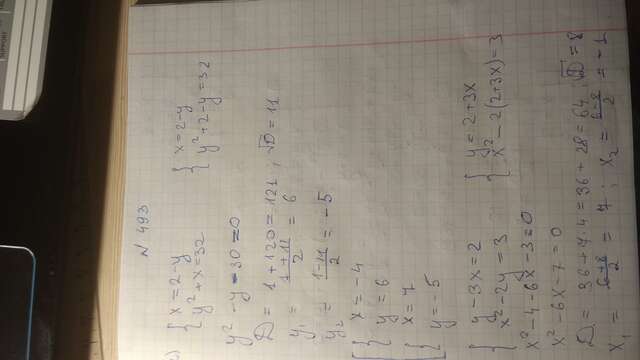 N 493
{ x = 2-y { x = 2-y
y² + x = 32 y² + 2 - y = 32
y² - y - 30 = 0
D = 1 + 120 = 121 ; √D = 11
y₁ = (1+11)/2 = 6
y₂ = (1-11)/2 = -5
[ { x = -4
y = 6
{ x = 7
y = -5
{ y - 3x = 2 { y = 2+3x
x² - 2y = 3 x² - 2(2+3x) = 3
x² - 4 - 6x - 3 = 0
x² - 6x - 7 = 0
D = 36 + 7·4 = 36 + 28 = 64 ; √D = 8
x₁ = (6+8)/2 = 7 ; x₂ = (6-8)/2 = -1